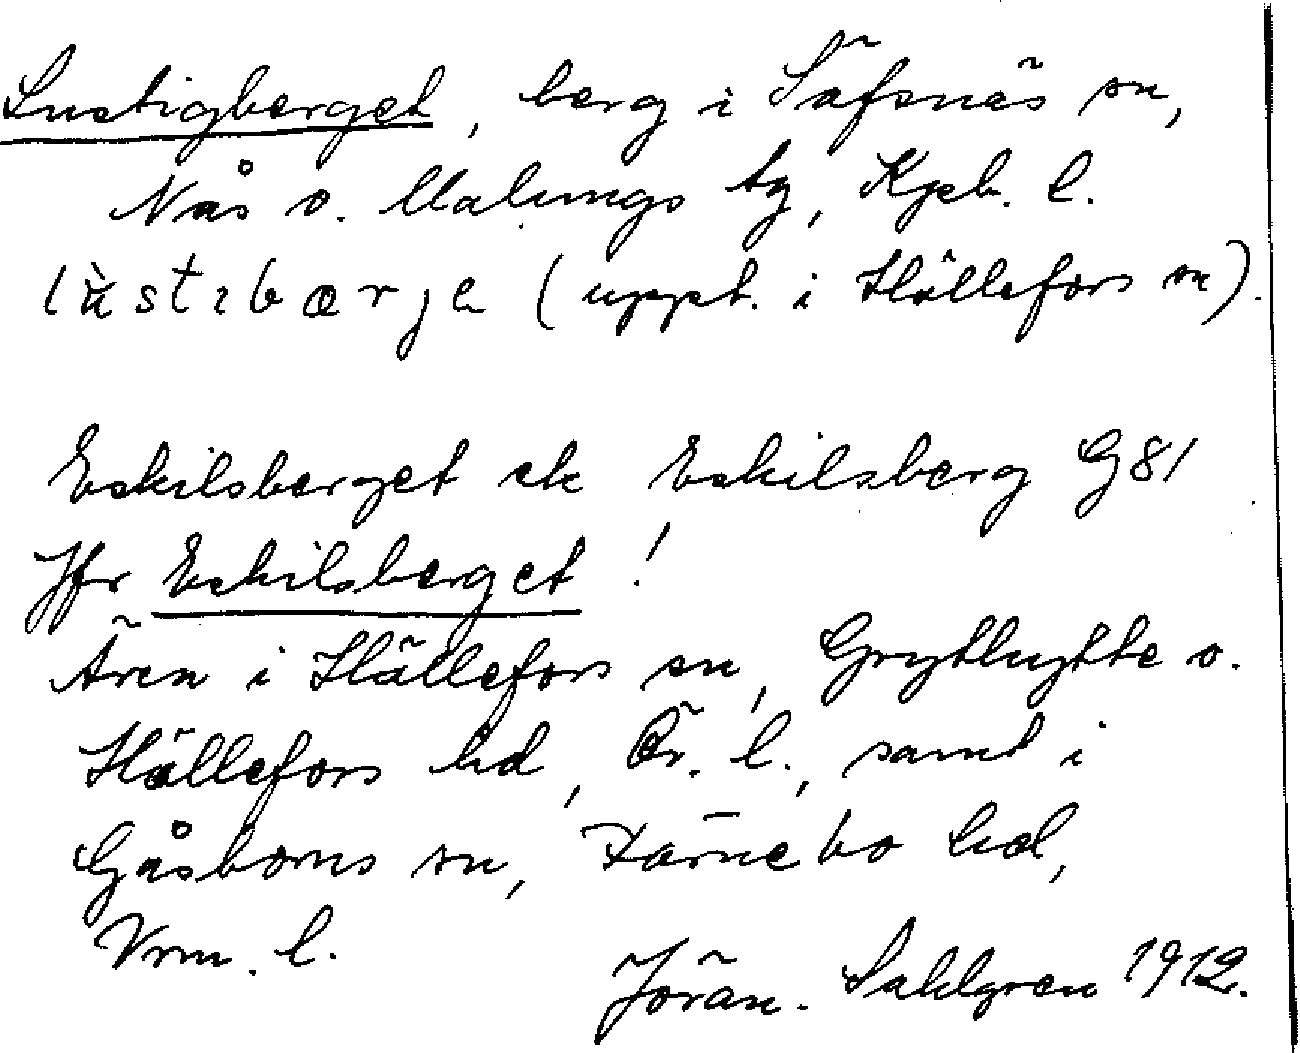 Lustigberget, berg i Säfsnäs sn,
Nås o. Malungs tg, Kpb. l.
lùstıbærje (uppt. i Hällefors sn).
Eskilsberget ek Eskilsberg G81
Jfr Eskilsberget!
Även i Hällefors sn, Grythytte o.
Hällefors hd, Ör. l., samt i
Gåsborns sn, Färnebo hd,
Vrm. l.
Jöran Sahlgren 1912.